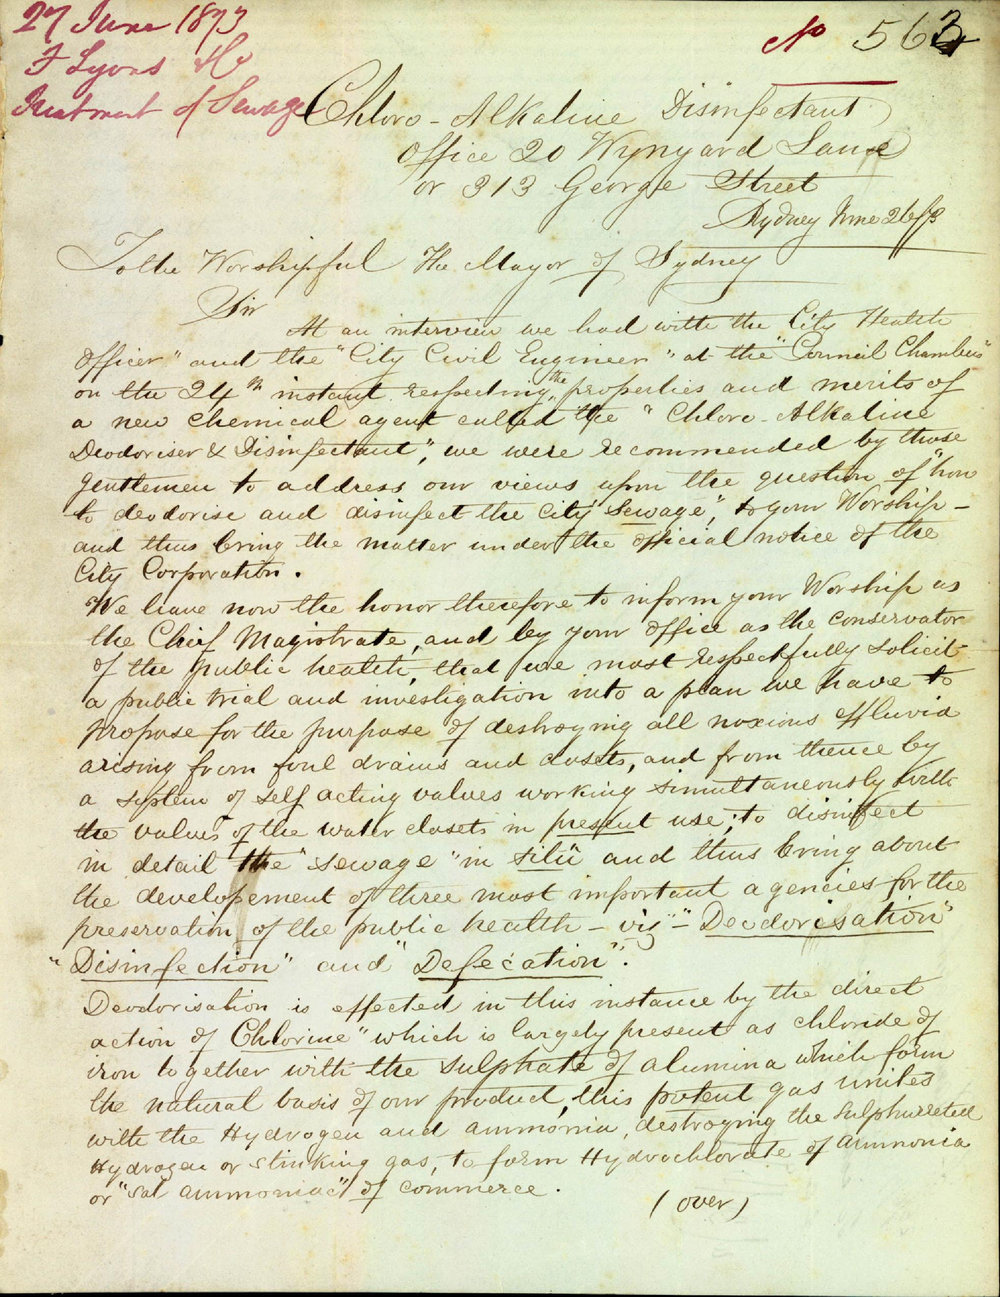 27 June 1873
F Lyons &Co
Treatment of Sewage
No 563
Chloro-Alkaline Disinfectant
Office 20 Wynyard Lane
or 313 George Street
Sydney June 26/73
To the Worshipful The Mayor of Sydney
Sir
At an interview we had with the "City Health
Officer" and the "City Civil Engineer" at the "Council Chambers"
on the 24th instant respecting the properties and merits of
a new chemical agent called the "Chloro-Alkaline
Deodoriser & Disinfectant", we were recommended by those
gentlemen to address our views upon the question of "how
to deodorise and disinfect the City Sewage", to your Worship -
and thus bring the matter under the official notice of the
City Corporation.
We have now the honor therefore to inform your Worship as
the Chief Magistrate, and by your office as the conservator
of the public health, that we most respectfully solicit
a public trial and investigation into a plan we have to
propose for the purpose of destroying all noxious effluvia
arising from foul drains and closets, and from thence by
a system of self acting valves working simultaneously with
the valves of the water closets in present use; to disinfect
in detail the "Sewage" in situ and thus bring about
the developement of three most important agencies for the
preservation of the public health - viz - "Deodorisation"
"Disinfection" and "Defecation".
Deodorisation is effected in this instance by the direct
action of "Chlorine" which is largely present as chloride of
iron together with the sulphate of alumina which form
the natural basis of our product, this potent gas unites
with the Hydrogen and ammonia, destroying the Sulphurreted
Hydrogen or stinking gas, to form Hydrochlorate of ammonia
or "sal ammoniac" of commerce.
(over)